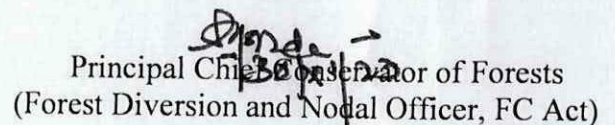 Principal Chief Conservator of Forests
(Forest Diversion and Nodal Officer, FC Act)